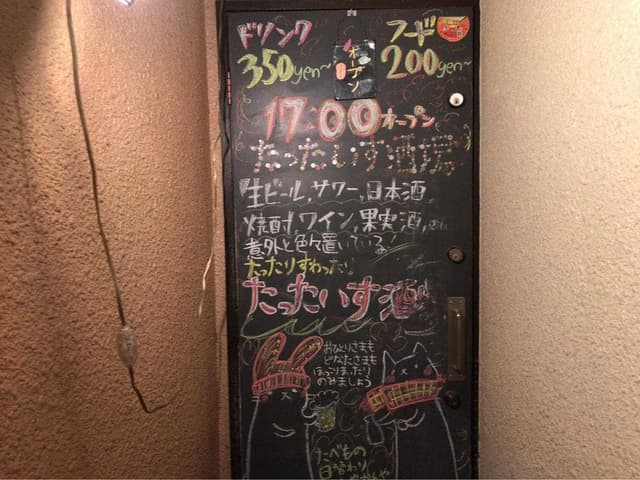 ドリンク
350yen~
フード
200yen~
オーデン
17:00オープン
たったいす酒場
生ビール,サワー,日本酒
焼酎,ワイン,果実酒,
意外と色々置いている!
たったりすわったり
たったいす酒
おひとりさまも
どなたさまも
ほっこりまったり
のみましょう
たべもの
日替わり